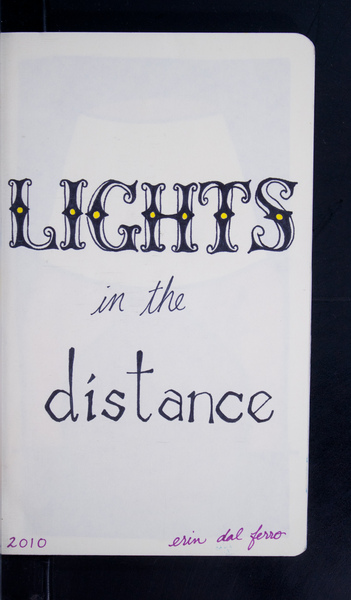 LIGHTS
in the
distance
2010 erin dal ferro